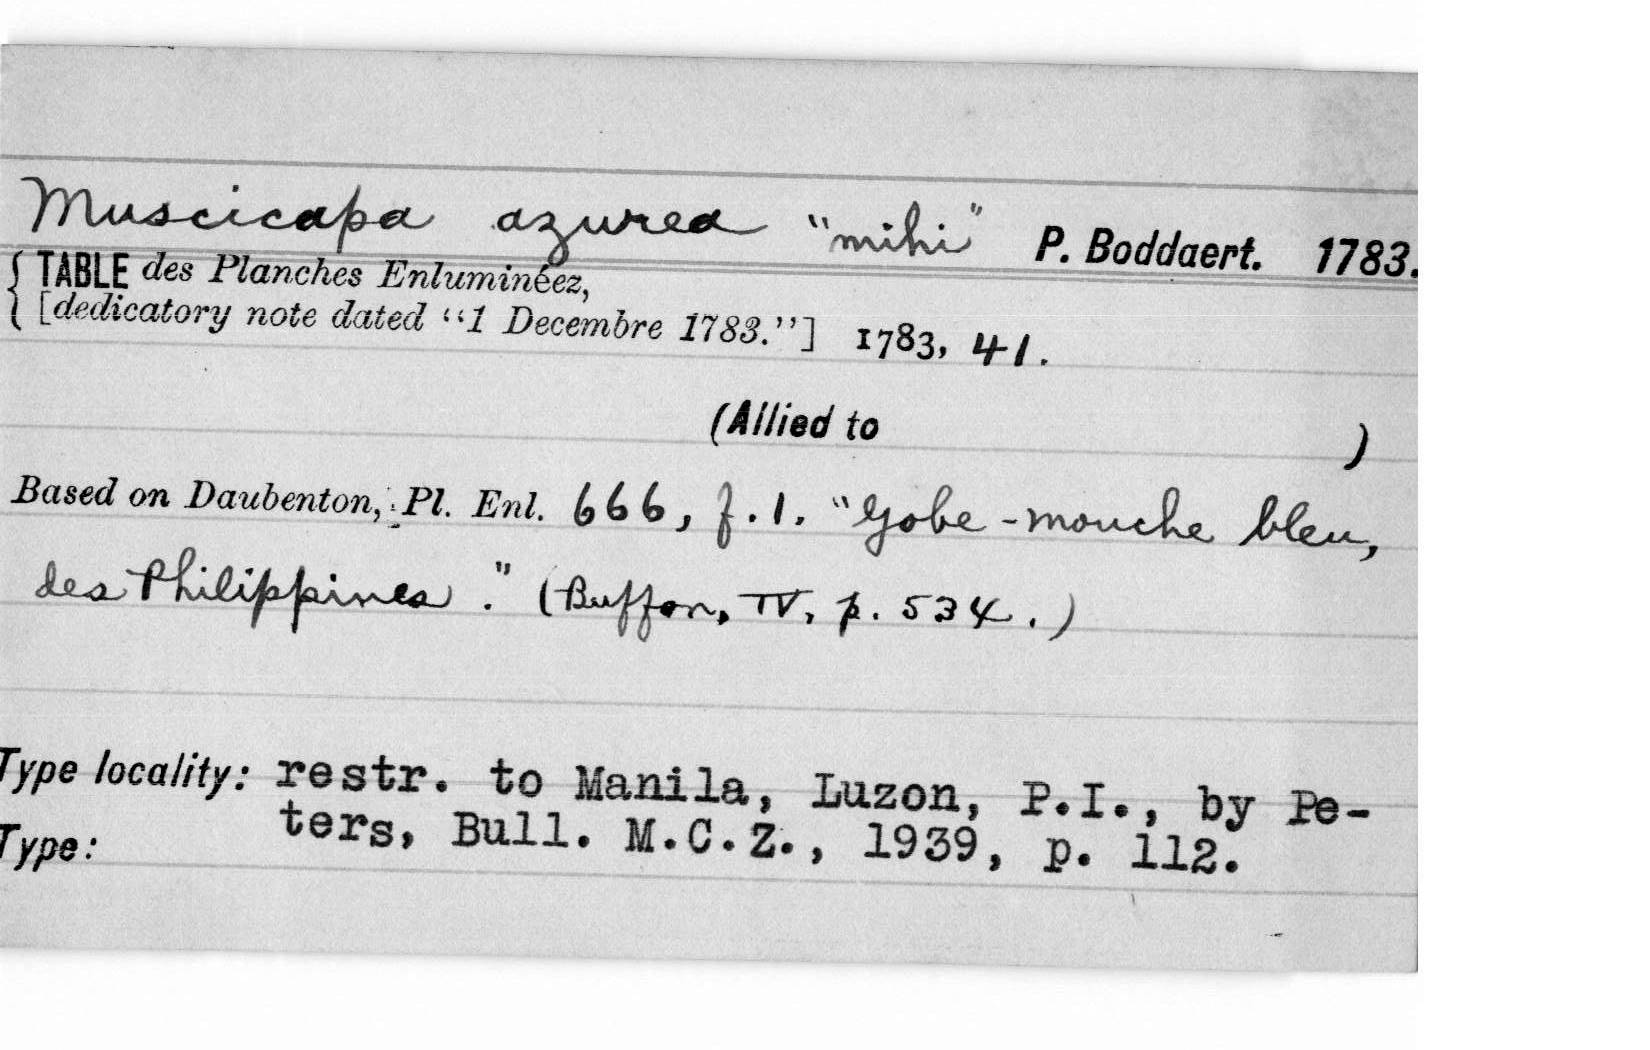 Muscicapa azurea "mihi" P. Boddaert. 1783.
{ TABLE des Planches Enluminéez,
[dedicatory note dated “1 Decembre 1783.”] 1783, 41.
(Allied to )
Based on Daubenton, Pl. Enl. 666, f.1. "Gobe-mouche bleu,
des Philippines." (Buffon, IV, p. 534.)
Type locality: restr. to Manila, Luzon, P.I., by Pe-
ters, Bull. M.C.Z., 1939, p. 112.
Type: